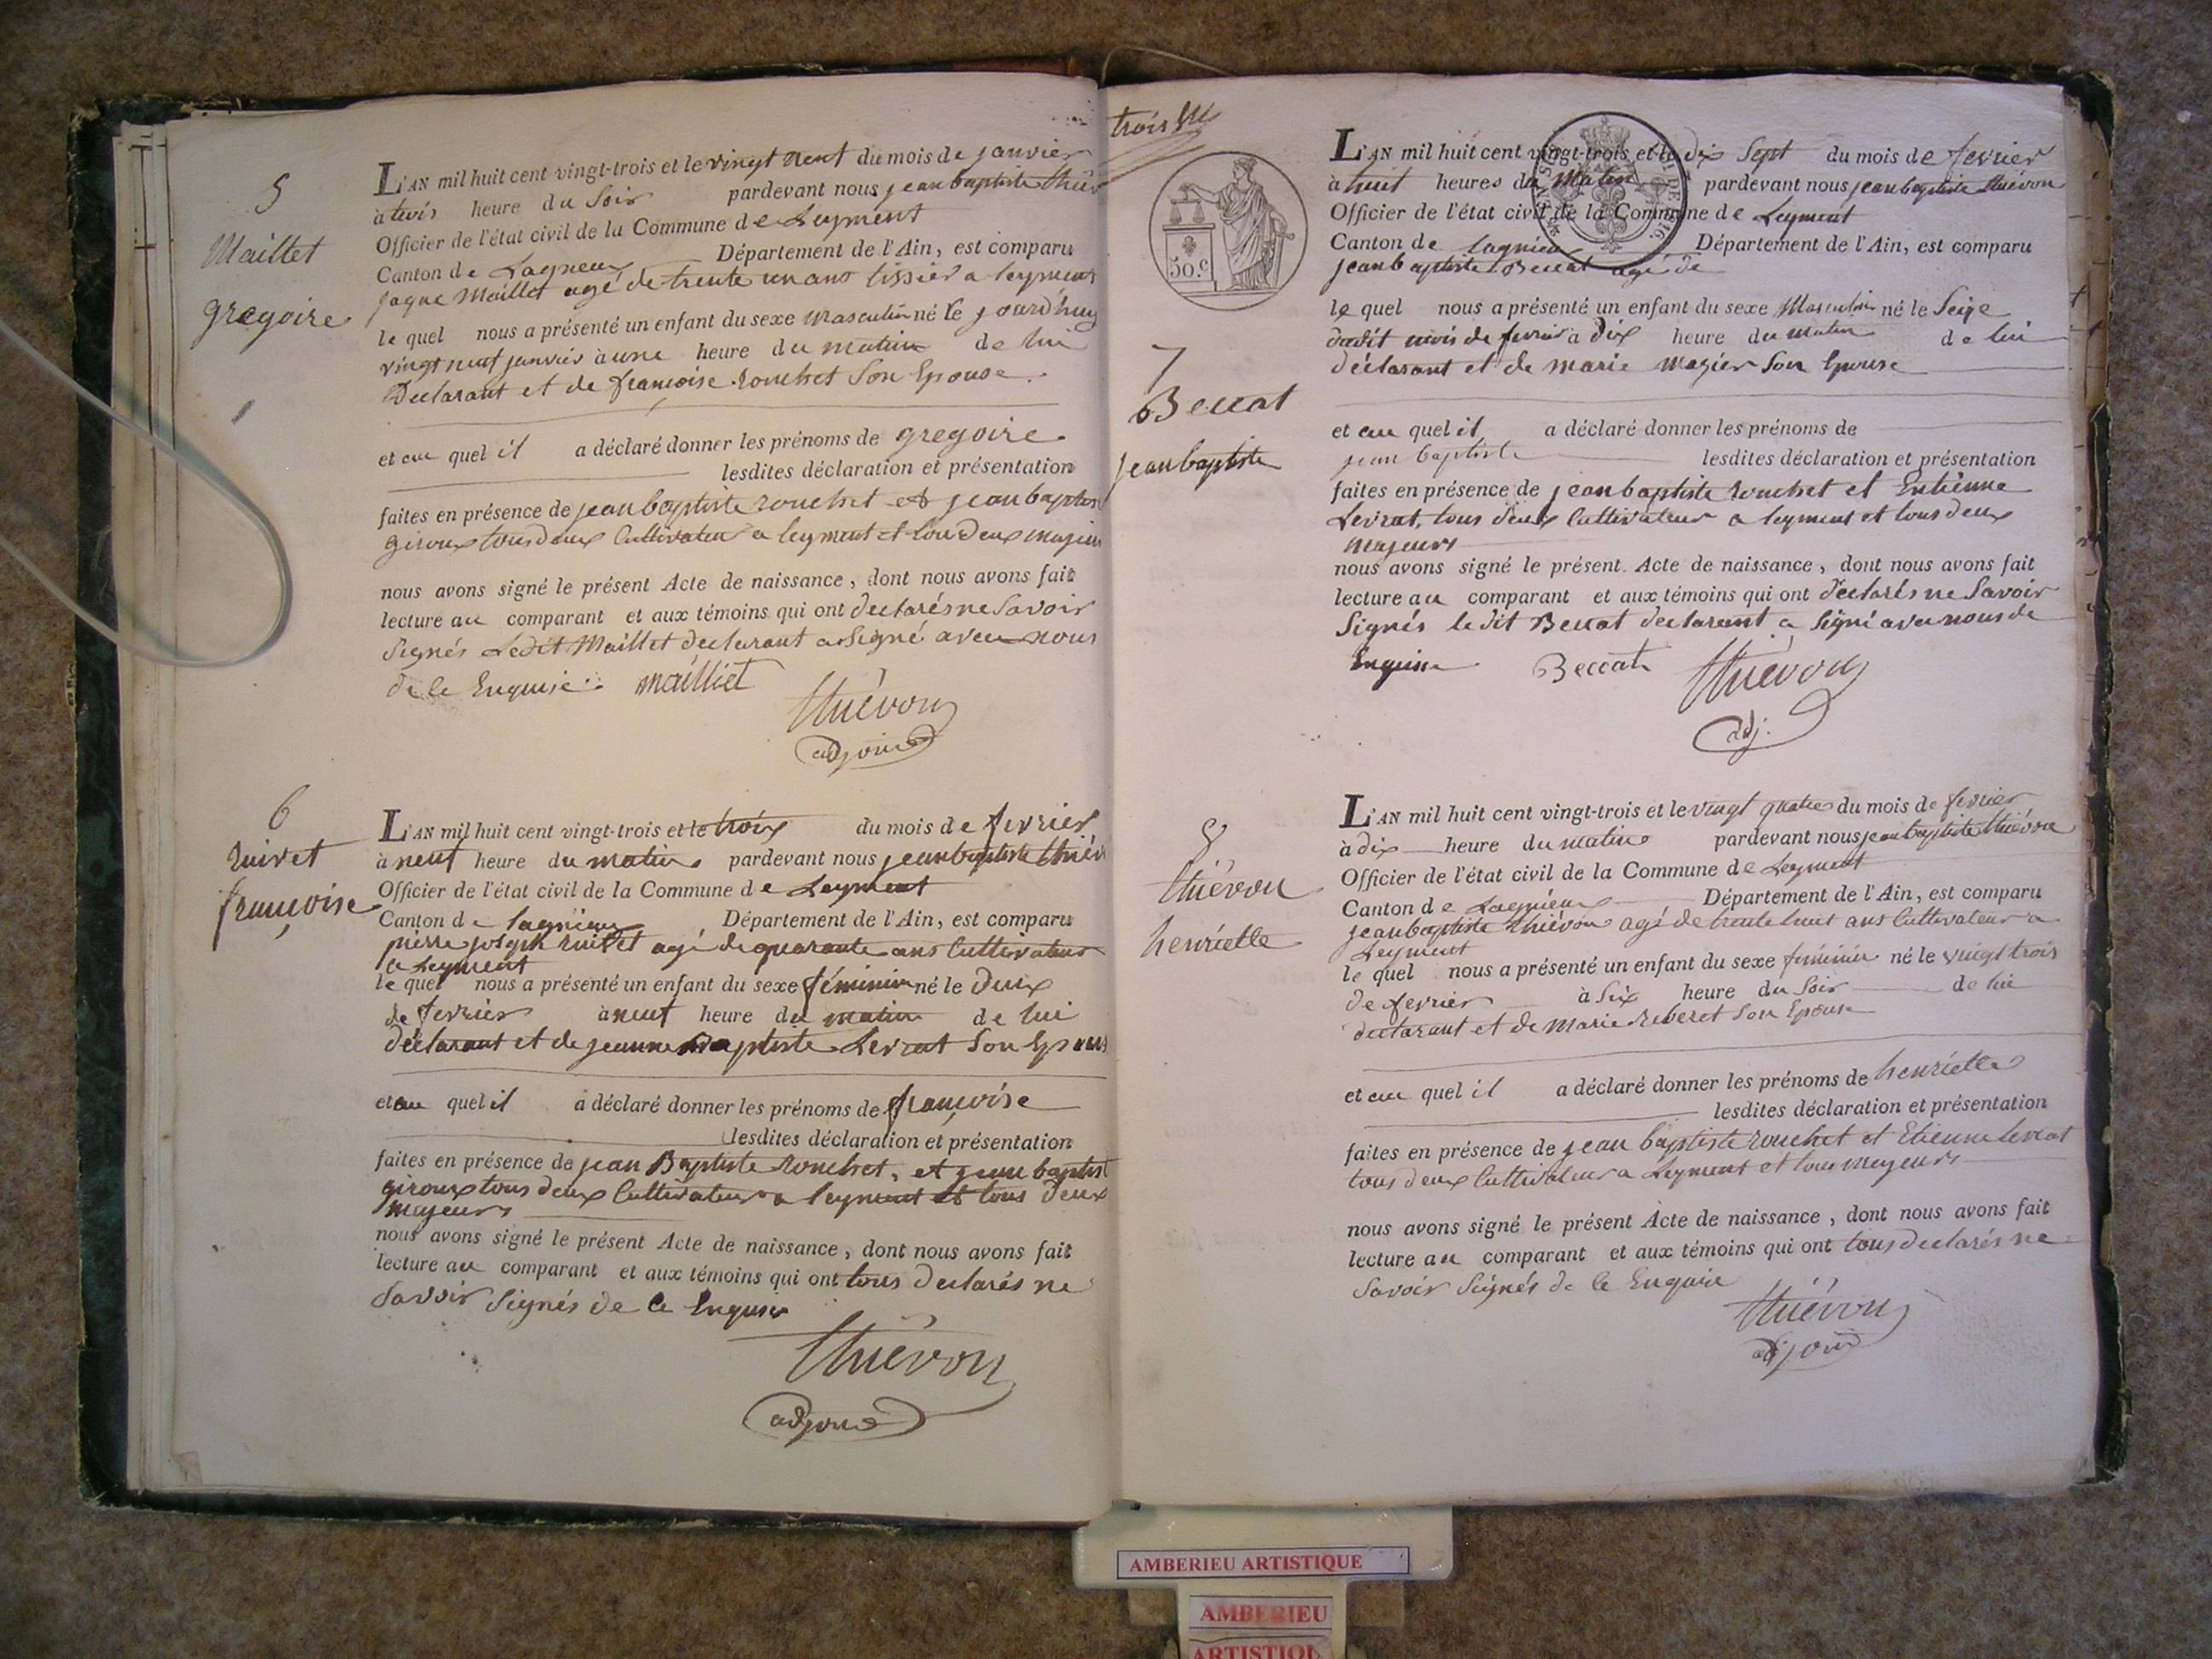 5
Maillet
gregoire
L'AN mil huit cent vingt-trois et le vingt neuf du mois de janvier
à trois heure du Soir pardevant nous jean baptiste thiév
Officier de l'état civil de la Commune de Leyment
Canton de Lagneux Département de l'Ain, est comparu
jaque Maillet agé de trente un ans tissier a leyment
le quel nous a présenté un enfant du sexe masculin né le jourd'huy
vingt neuf janvier à une heure du matin de lui
Declarant et de françoise rouchet Son Epouse
et au quel il a déclaré donner les prénoms de gregoire
lesdites déclaration et présentation
faites en présence de jean baptiste rouchet et jean baptiste
giroux tous deux Cultivateur a leyment et tou deux majeur
nous avons signé le présent Acte de naissance, dont nous avons fait
lecture au comparant et aux témoins qui ont declarés ne Savoir
Signés Ledit Maillet declarant a Signé avec nous
de le Enquise. mailliet
thiévon
adjoint
6
ruivet
françoise
L'AN mil huit cent vingt-trois et le trois du mois de fevrier
à neuf heure du matin pardevant nous jean baptiste thiév
Officier de l'état civil de la Commune de Leyment
Canton de lagnieux Département de l'Ain, est comparu
pierre joseph ruivet agé de quarante ans Cultivateur
a Leyment
le quel nous a présenté un enfant du sexe féminin né le Deux
de fevrier à neuf heure du matin de lui
déclarant et de jeanne Baptiste Levrat Son Epouse
et au quel il a déclaré donner les prénoms de françoise
lesdites déclaration et présentation
faites en présence de jean Baptiste rouchet, et jean baptist
giroux tous deux Cultivateur a leyment et tous deux
majeurs
nous avons signé le présent Acte de naissance, dont nous avons fait
lecture au comparant et aux témoins qui ont tous declarés ne
Savoir Signés de le Enquise
thiévon
adjoint
trois
50.c
7
Beccat
jean baptiste
L'AN mil huit cent vingt-trois et le dix Sept du mois de fevrier
à huit heures du Matin pardevant nous jean baptiste thiévon
Officier de l'état civil de la Commune de Leyment
Canton de lagnieu Département de l'Ain, est comparu
jean baptiste Beccat agé de
le quel nous a présenté un enfant du sexe Masculin né le Seize
dudit mois de fevrier à dix heure du matin de lui
déclarant et de marie magier Son Epouse
et au quel il a déclaré donner les prénoms de
jean baptiste lesdites déclaration et présentation
faites en présence de jean baptiste rouchet et Entiènne
Levrat, tous deux Cultivateur a leyment et tous deux
majeurs
nous avons signé le présent Acte de naissance, dont nous avons fait
lecture au comparant et aux témoins qui ont déclarés ne Savoir
Signés le dit Beccat declarant a Signé avec nous de
Enquise Beccat thiévon
adj.
8
thiévon
henriette
L'AN mil huit cent vingt-trois et le vingt quatre du mois de fevrier
à dix heure du matin pardevant nous jean baptiste thiévon
Officier de l'état civil de la Commune de Leyment
Canton de Lagnieux Département de l'Ain, est comparu
jean baptiste thiévon agé de trente huit ans Cultivateur a
Leyment
le quel nous a présenté un enfant du sexe féminin né le vingt trois
de fevrier à Six heure du Soir de lui
declarant et de Marie reberet Son Epouse
et au quel il a déclaré donner les prénoms de henriette
lesdites déclaration et présentation
faites en présence de jean baptiste rouchet et Etienne levrat
tous deux Cultivateur a Leyment et tous majeurs
nous avons signé le présent Acte de naissance, dont nous avons fait
lecture au comparant et aux témoins qui ont tous declarés ne
Savoir Signés de le Enquise
thiévon
adjoint
AMBERIEU ARTISTIQUE
AMBERIEU
ARTISTIQU